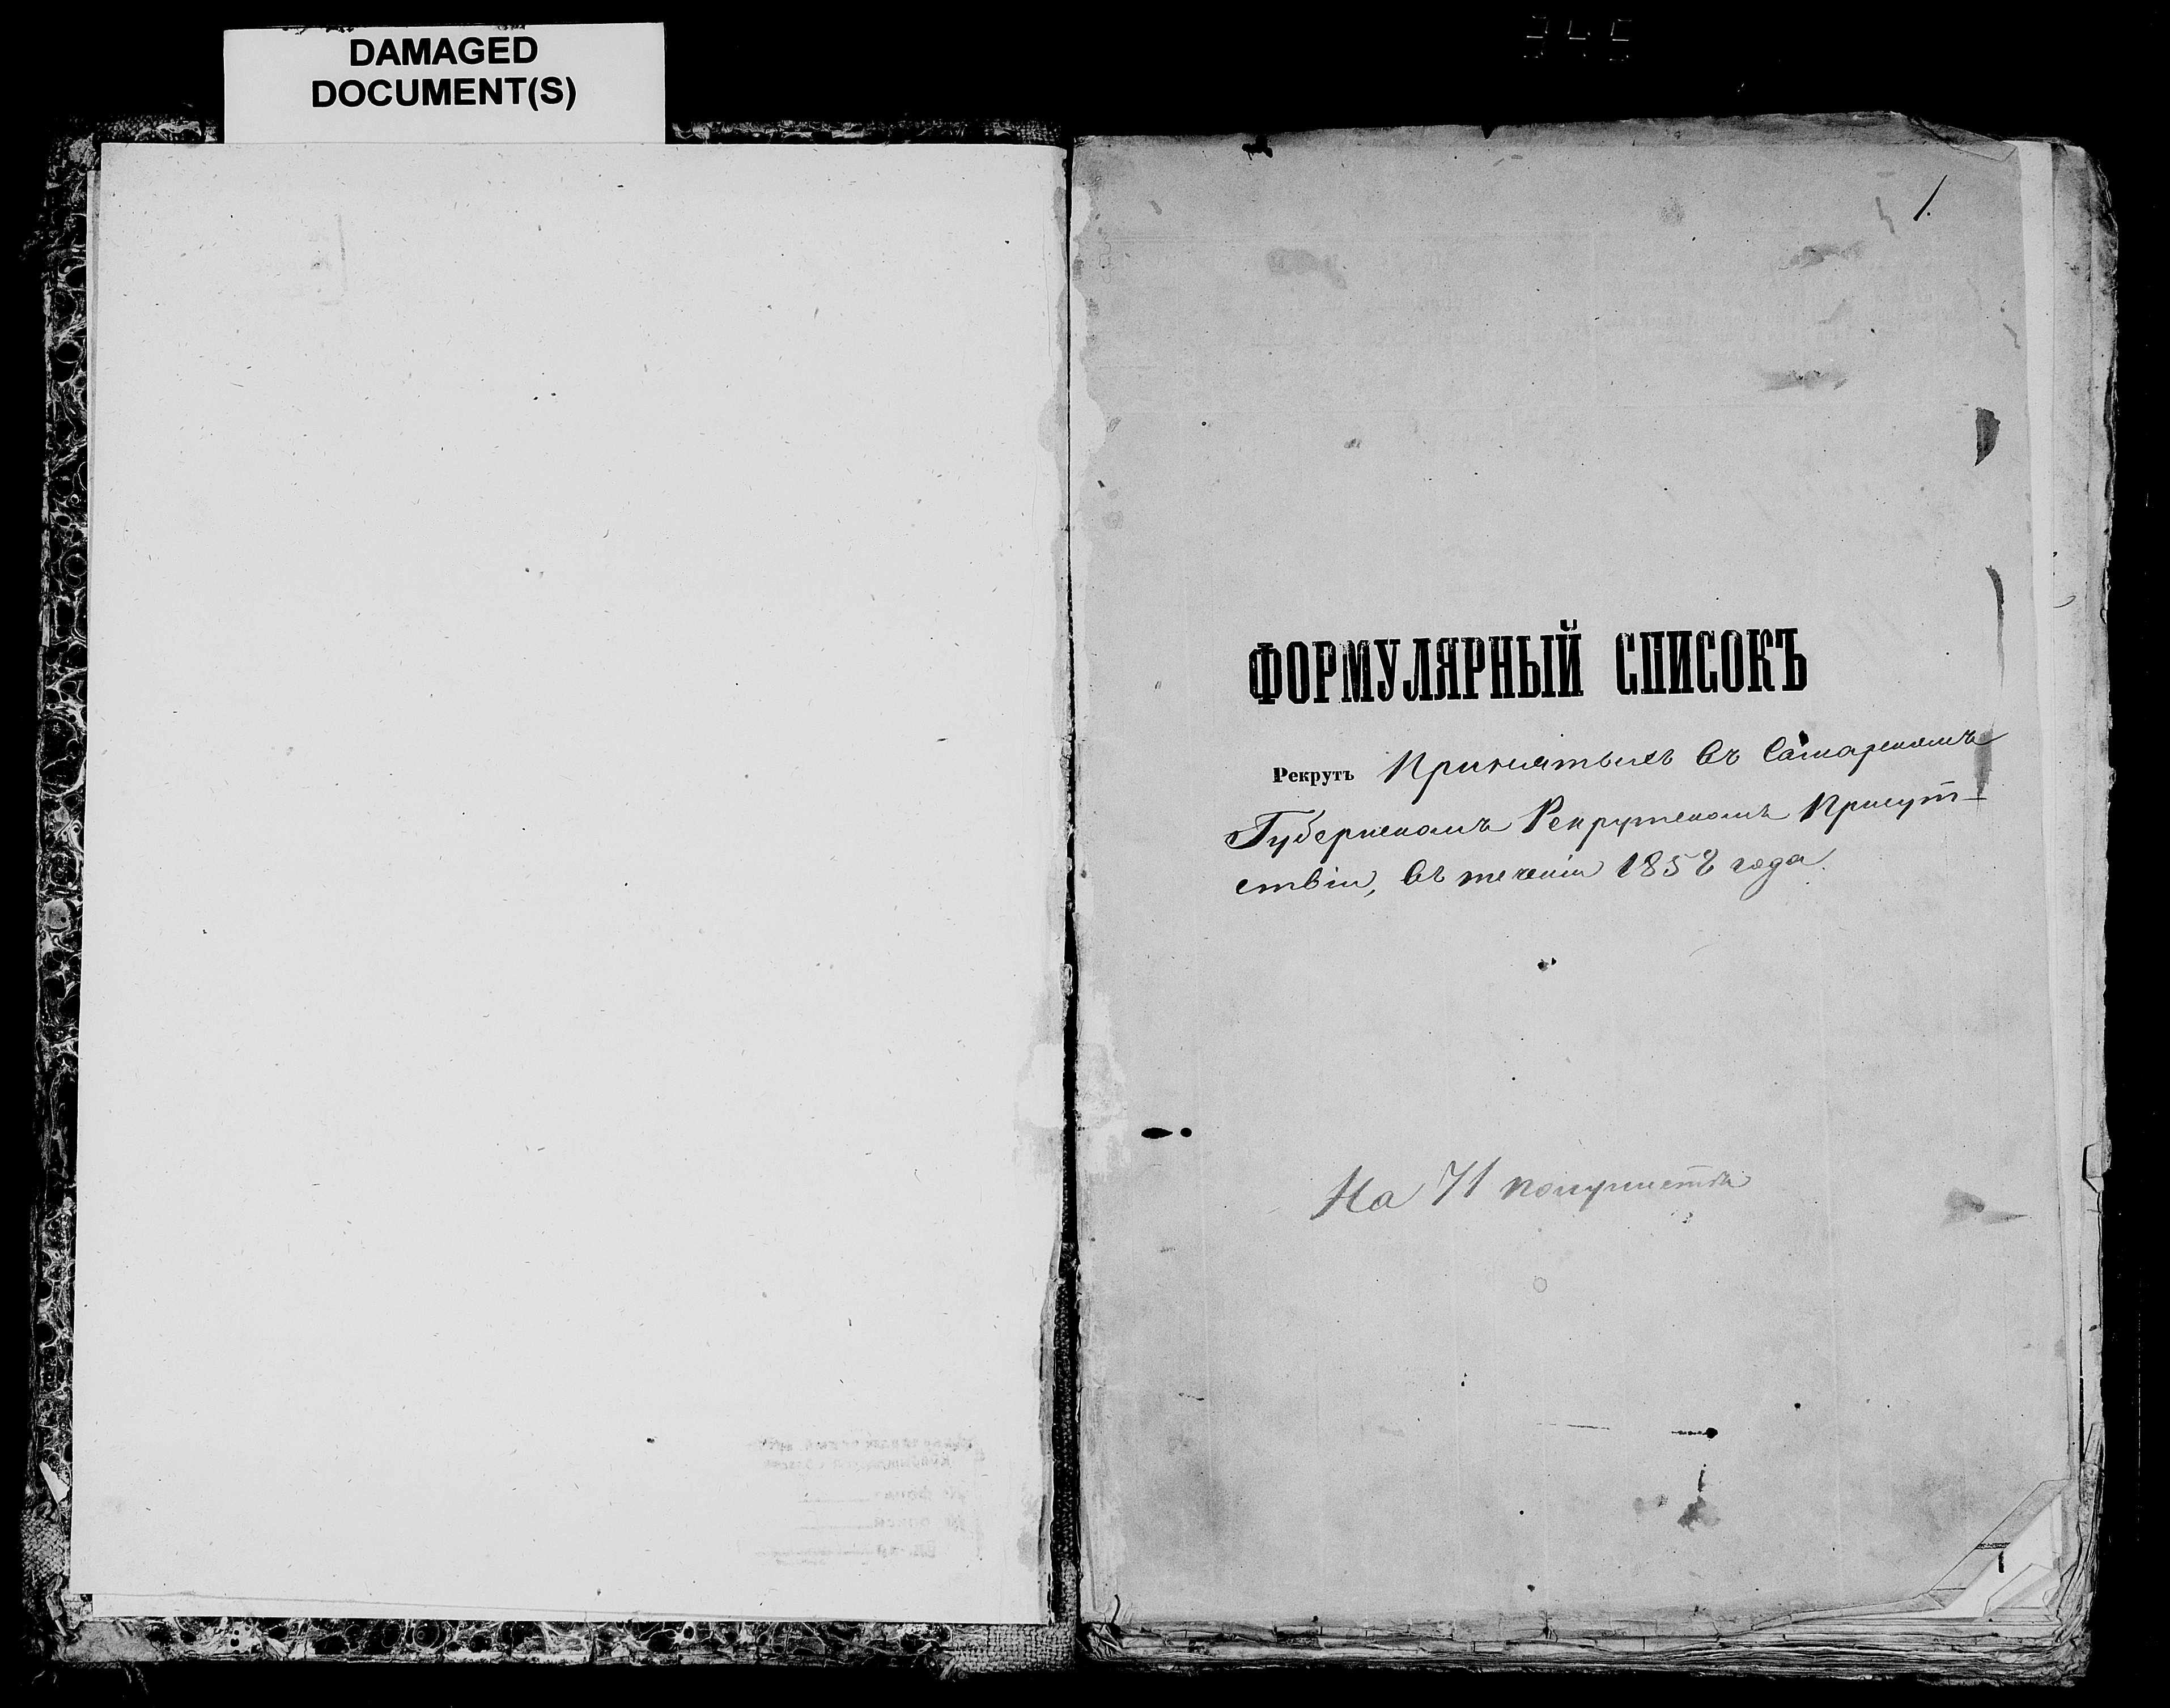 DAMAGED
DOCUMENT(S)
1.
ФОРМУЛЯРНЫЙ СПИСОКЪ
Рекрутъ Принятыхъ въ Самарскомъ
Губернскомъ Рекрутскомъ Присут-
ствіи, въ теченіи 1858 года.
На 71 полулистѣ